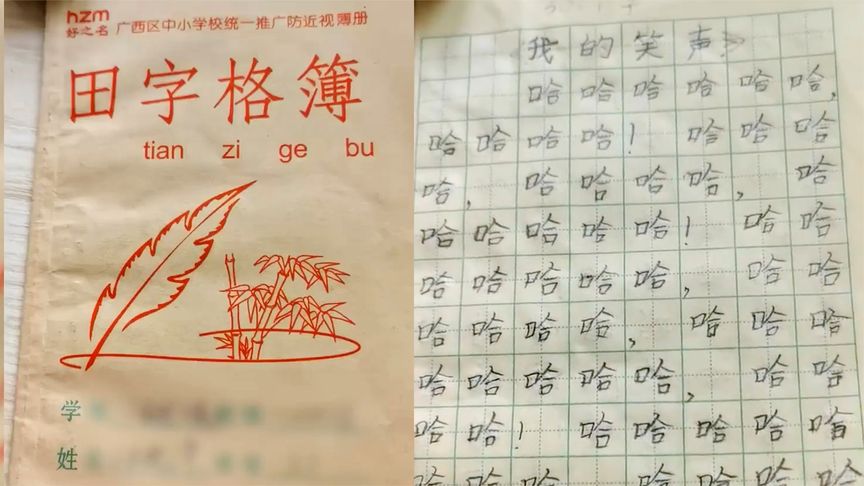 hzm
好之名 广西区中小学校统一推广防近视薄册
田字格簿
tian zi ge bu
学
姓
《我的笑声》
哈哈哈哈哈哈,
哈哈哈哈! 哈哈哈
哈, 哈哈哈哈, 哈
哈哈哈哈哈! 哈哈
哈哈哈哈哈, 哈哈
哈哈哈哈, 哈哈哈
哈哈哈哈哈, 哈哈
哈哈! 哈哈哈哈哈
哈哈哈哈哈 哈哈